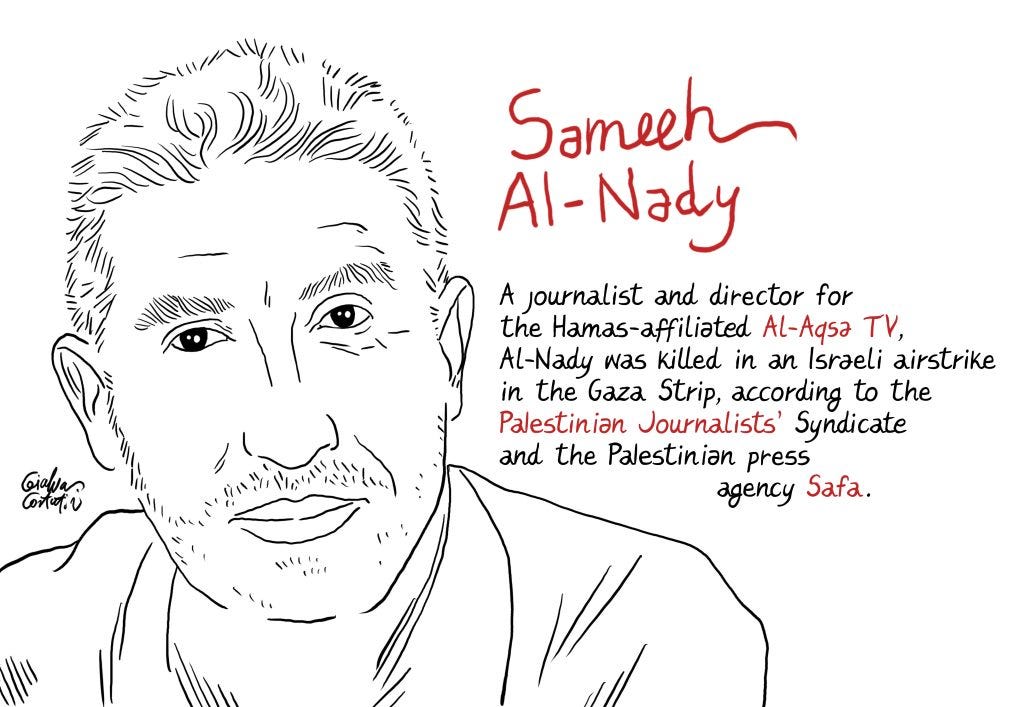 Sameeh
Al-Nady
A journalist and director for
the Hamas-affiliated Al-Aqsa TV,
Al-Nady was killed in an Israeli airstrike
in the Gaza Strip, according to the
Palestinian Journalists' Syndicate
and the Palestinian press
agency Safa.